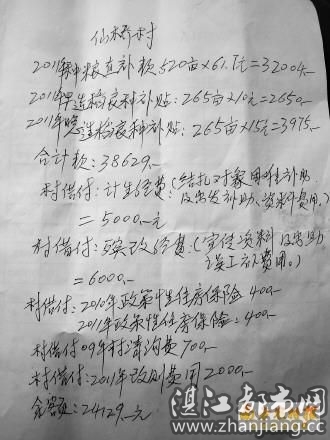 仙桥村
2011年种粮直补款520亩×61.5元=32004.-
2011年早造稻良种补贴:265亩×10元=2650.-
2011年晚造稻良种补贴:265亩×15元=3975.-
合计款:38629.-
村借付:计生经费:(结扎对象用生补助
及出发补助、资料费用。)
=5000.-元
村借付:殡改经费(宣传资料及出动
误工补费用。)
=6000.-
村借付:2010年政策性住房保险 400.-
2011年政策性住房保险:400.-
村借付09年村清沟费700.-
村借付:2011年改则费用2000.-
余额:24129.-元
湛江都市网
www.zhanjiang.cc